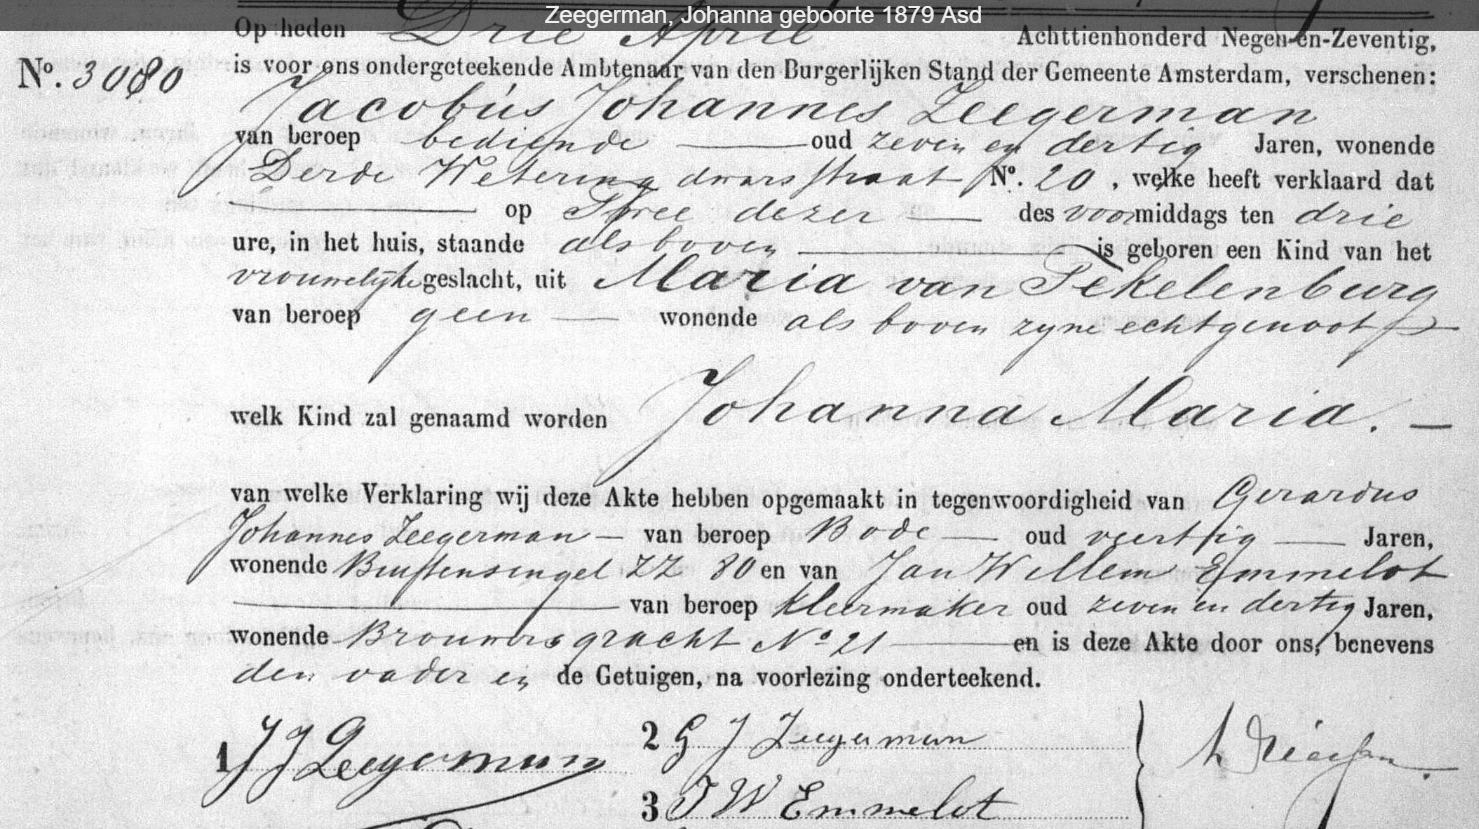 Zeegerman, Johanna geboorte 1879 Asd
Op heden Drie April Achttienhonderd Negen-en-Zeventig,
No. 3080 is voor ons ondergeteekende Ambtenaar van den Burgerlijken Stand der Gemeente Amsterdam, verschenen:
Jacobus Johannes Zeegerman
van beroep bediende oud zeven en dertig Jaren, wonende
Derde Weteringdwarsstraat No. 20, welke heeft verklaard dat
op Twee dezer des voormiddags ten drie
ure, in het huis, staande als boven is geboren een Kind van het
vrouwelijke geslacht, uit Maria van Tekelenburg
van beroep geen wonende als boven zyne echtgenoot
welk Kind zal genaamd worden Johanna Maria. —
van welke Verklaring wij deze Akte hebben opgemaakt in tegenwoordigheid van Gerardus
Johannes Zeegerman — van beroep Bode — oud veertig — Jaren,
wonende Buitensingel ZZ 80 en van Jan Willem Emmelot
van beroep kleermaker oud zeven en dertig Jaren,
wonende Brouwersgracht No 21 en is deze Akte door ons, benevens
den vader en de Getuigen, na voorlezing onderteekend.
1 J J Zeegerman
2 G J Zeegerman
3 J W Emmelot